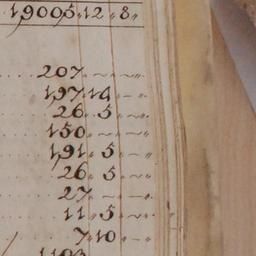 1,9005,,12,,8,,
207,,~,,~,,
1,97,,14,,~,,
26,,5,,~,,
150,,~,,~,,
1,91,,5,,~,,
26,,5,,~,,
27,,~,,~,,
11,,5,,~,,
7,,10,,~,,